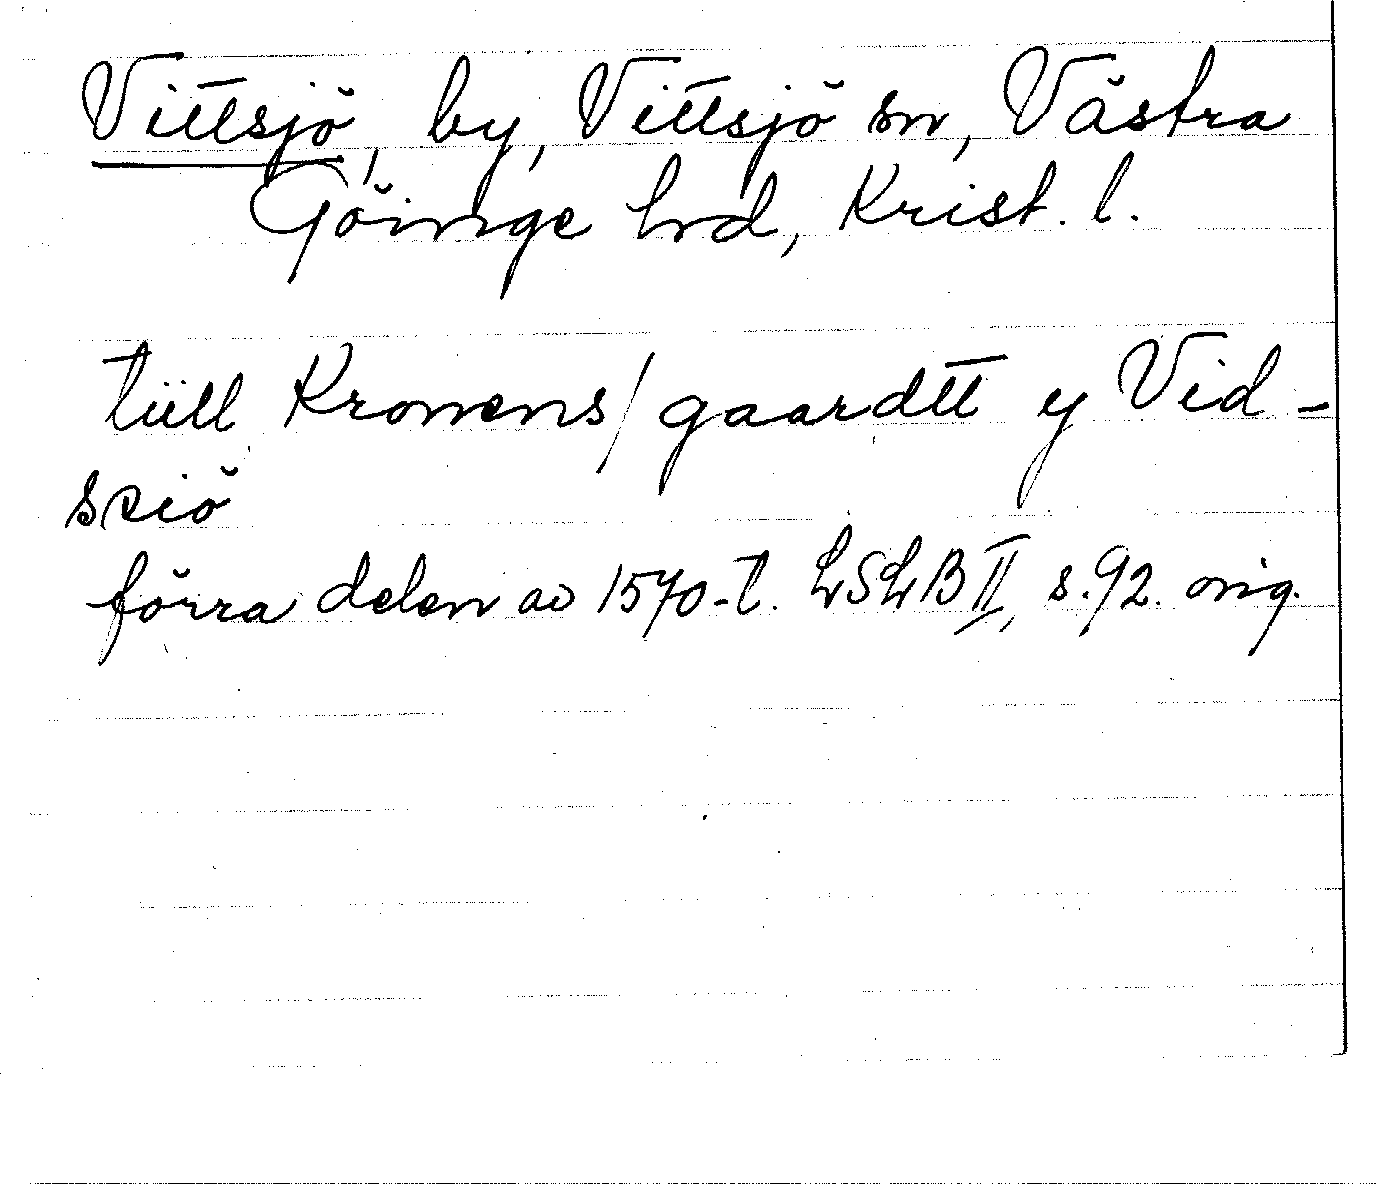 Vittsjö, by, Vittsjö sn, Västra
Göinge hrd, Krist. l.
tiill Kronens/gaardtt y Vid-
sziö
förra delen av 1570-t. LSLB II, s. 92. orig.